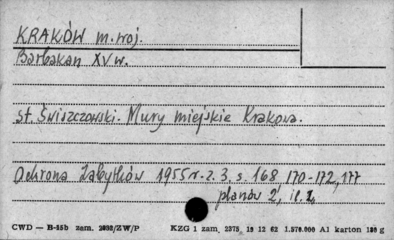 KRAKÓW m. woj.
Barbakan XV w.
st. Świszczowski. Mury miejskie Krakowa.
Ochrona Zabytków 1955 r. z. 3, s. 168, 170-172, 177
planów 2, il. 2
CWD — B-15b zam. 2032/ZW/P KZG 1 zam. 2375 19 12 62 1.570.000 A1 karton 180 g